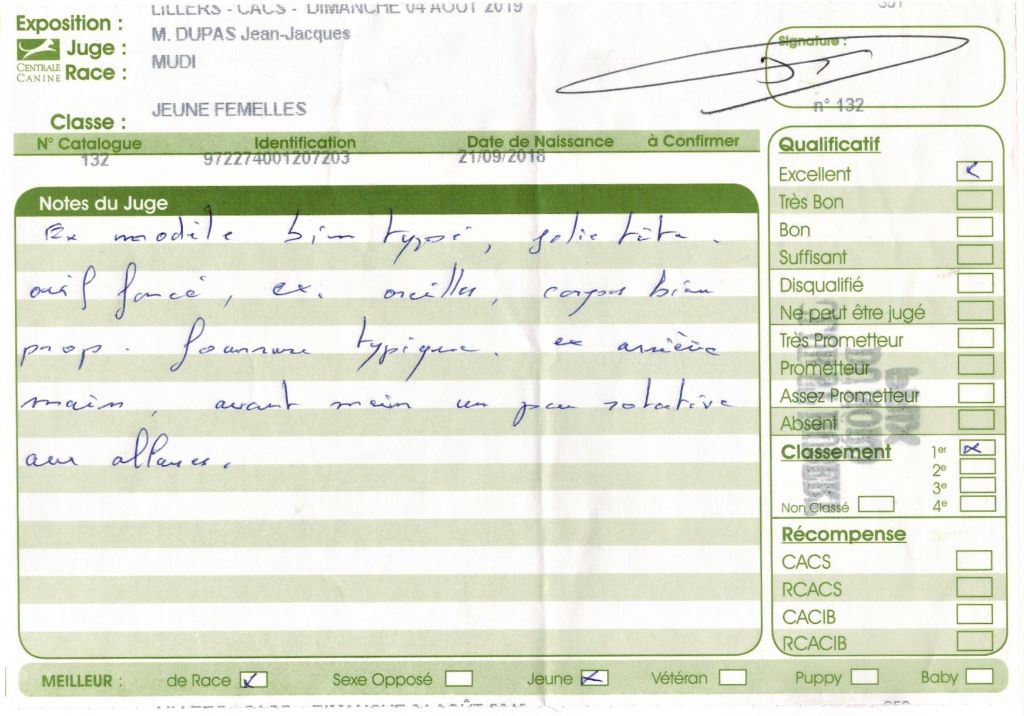 LILLERS - CACS - DIMANCHE 04 AOÛT 2019
Exposition :
Juge : M. DUPAS Jean-Jacques
Race : MUDI
CENTRALE
CANINE
Signature :
n° 132
Classe : JEUNE FEMELLES
N° Catalogue Identification Date de Naissance à Confirmer
132 972274001207203 21/09/2018
Notes du Juge
Ex modèle bien typé, jolie tête.
œil foncé, ex. oreilles, corps bien
prop. fourrure typique. ex arrière
main, avant main un peu rotative
aux allures.
Qualificatif
Excellent
Très Bon
Bon
Suffisant
Disqualifié
Ne peut être jugé
Très Prometteur
Prometteur
Assez Prometteur
Absent
Classement 1er
2e
3e
Non Classé 4e
Récompense
CACS
RCACS
CACIB
RCACIB
MEILLEUR : de Race Sexe Opposé Jeune Vétéran Puppy Baby